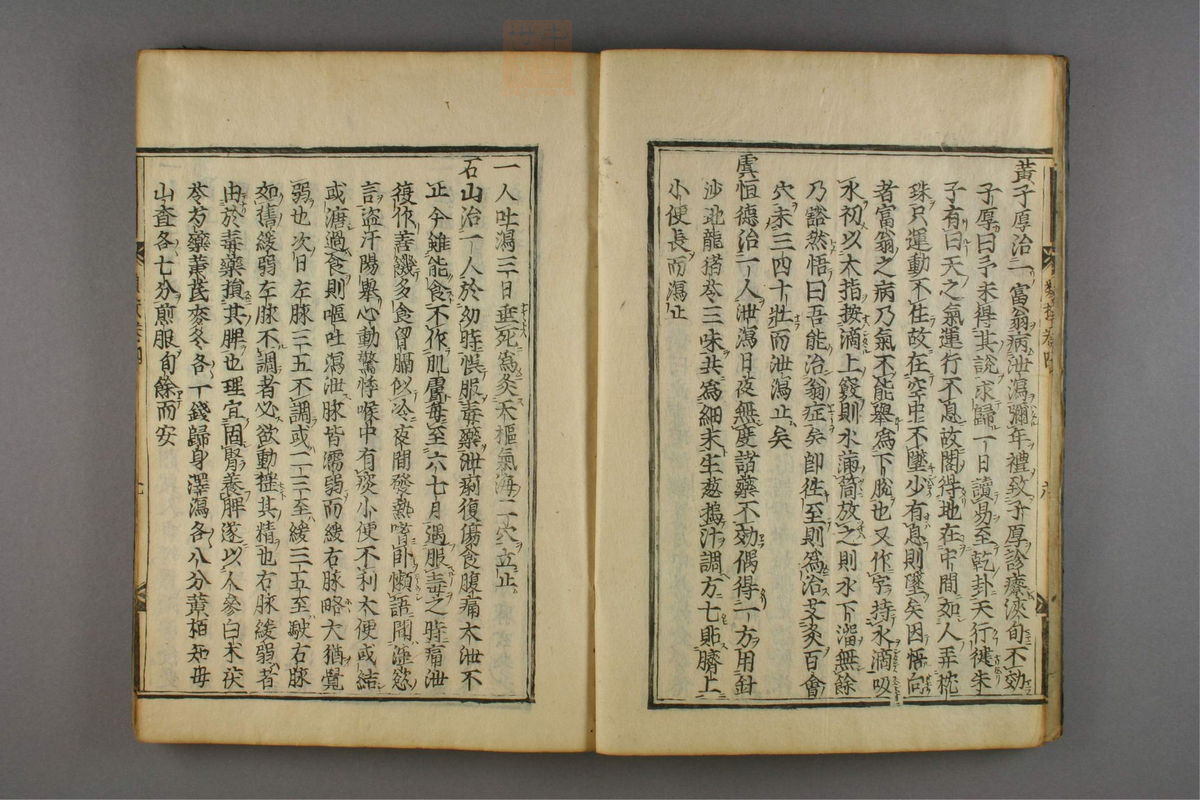 黃子厚治一富翁病泄瀉彌年禮致子厚診療浹旬不効
子厚曰予未得其說求歸一日讀易至乾卦天行徤朱
子有曰天之氣運行不息故閣得地在中間如人弄椀
珠只運動不住故在空中不墜少有息則墜矣因悟向
者富翁之病乃氣不能舉爲下脫也又作字持水滴吸
水初以大指按滴上竅則水滿筒放之則水下溜無餘
乃豁然悟曰吾能治翁症矣卽徃至則爲治艾灸百會
穴未三四十壯而泄瀉止矣
虞恒德治一人泄瀉日夜無度諸藥不効偶得一方用針
沙地龍猪苓三味共爲細末生葱搗汁調方七貼臍上
小便長而瀉止
一人吐瀉三日垂死爲灸天樞氣海二穴立止
石山治一人於幼時悞服毒藥泄痢復傷食腹痛大泄不
止今雖能食不作肌膚每至六七月遇服毒之時痛泄
復作善饑多食胷膈似冷夜間發熱嗜卧懶語聞淫慾
言盜汗陽舉心動驚悸喉中有痰小便不利大便或結
或溏過食則嘔吐瀉泄脉皆濡弱而緩右脉略大猶覺
弱也次日左脉三五不調或二三至緩三五至駃右脉
如舊緩弱左脉不調者必欲動搖其精也右脉緩弱者
由於毒藥損其脾也理宜固腎養脾遂以人參白朮茯
苓芍藥黃芪麥冬各一錢歸身澤瀉各八分黃栢知母
山査各七分煎服旬餘而安